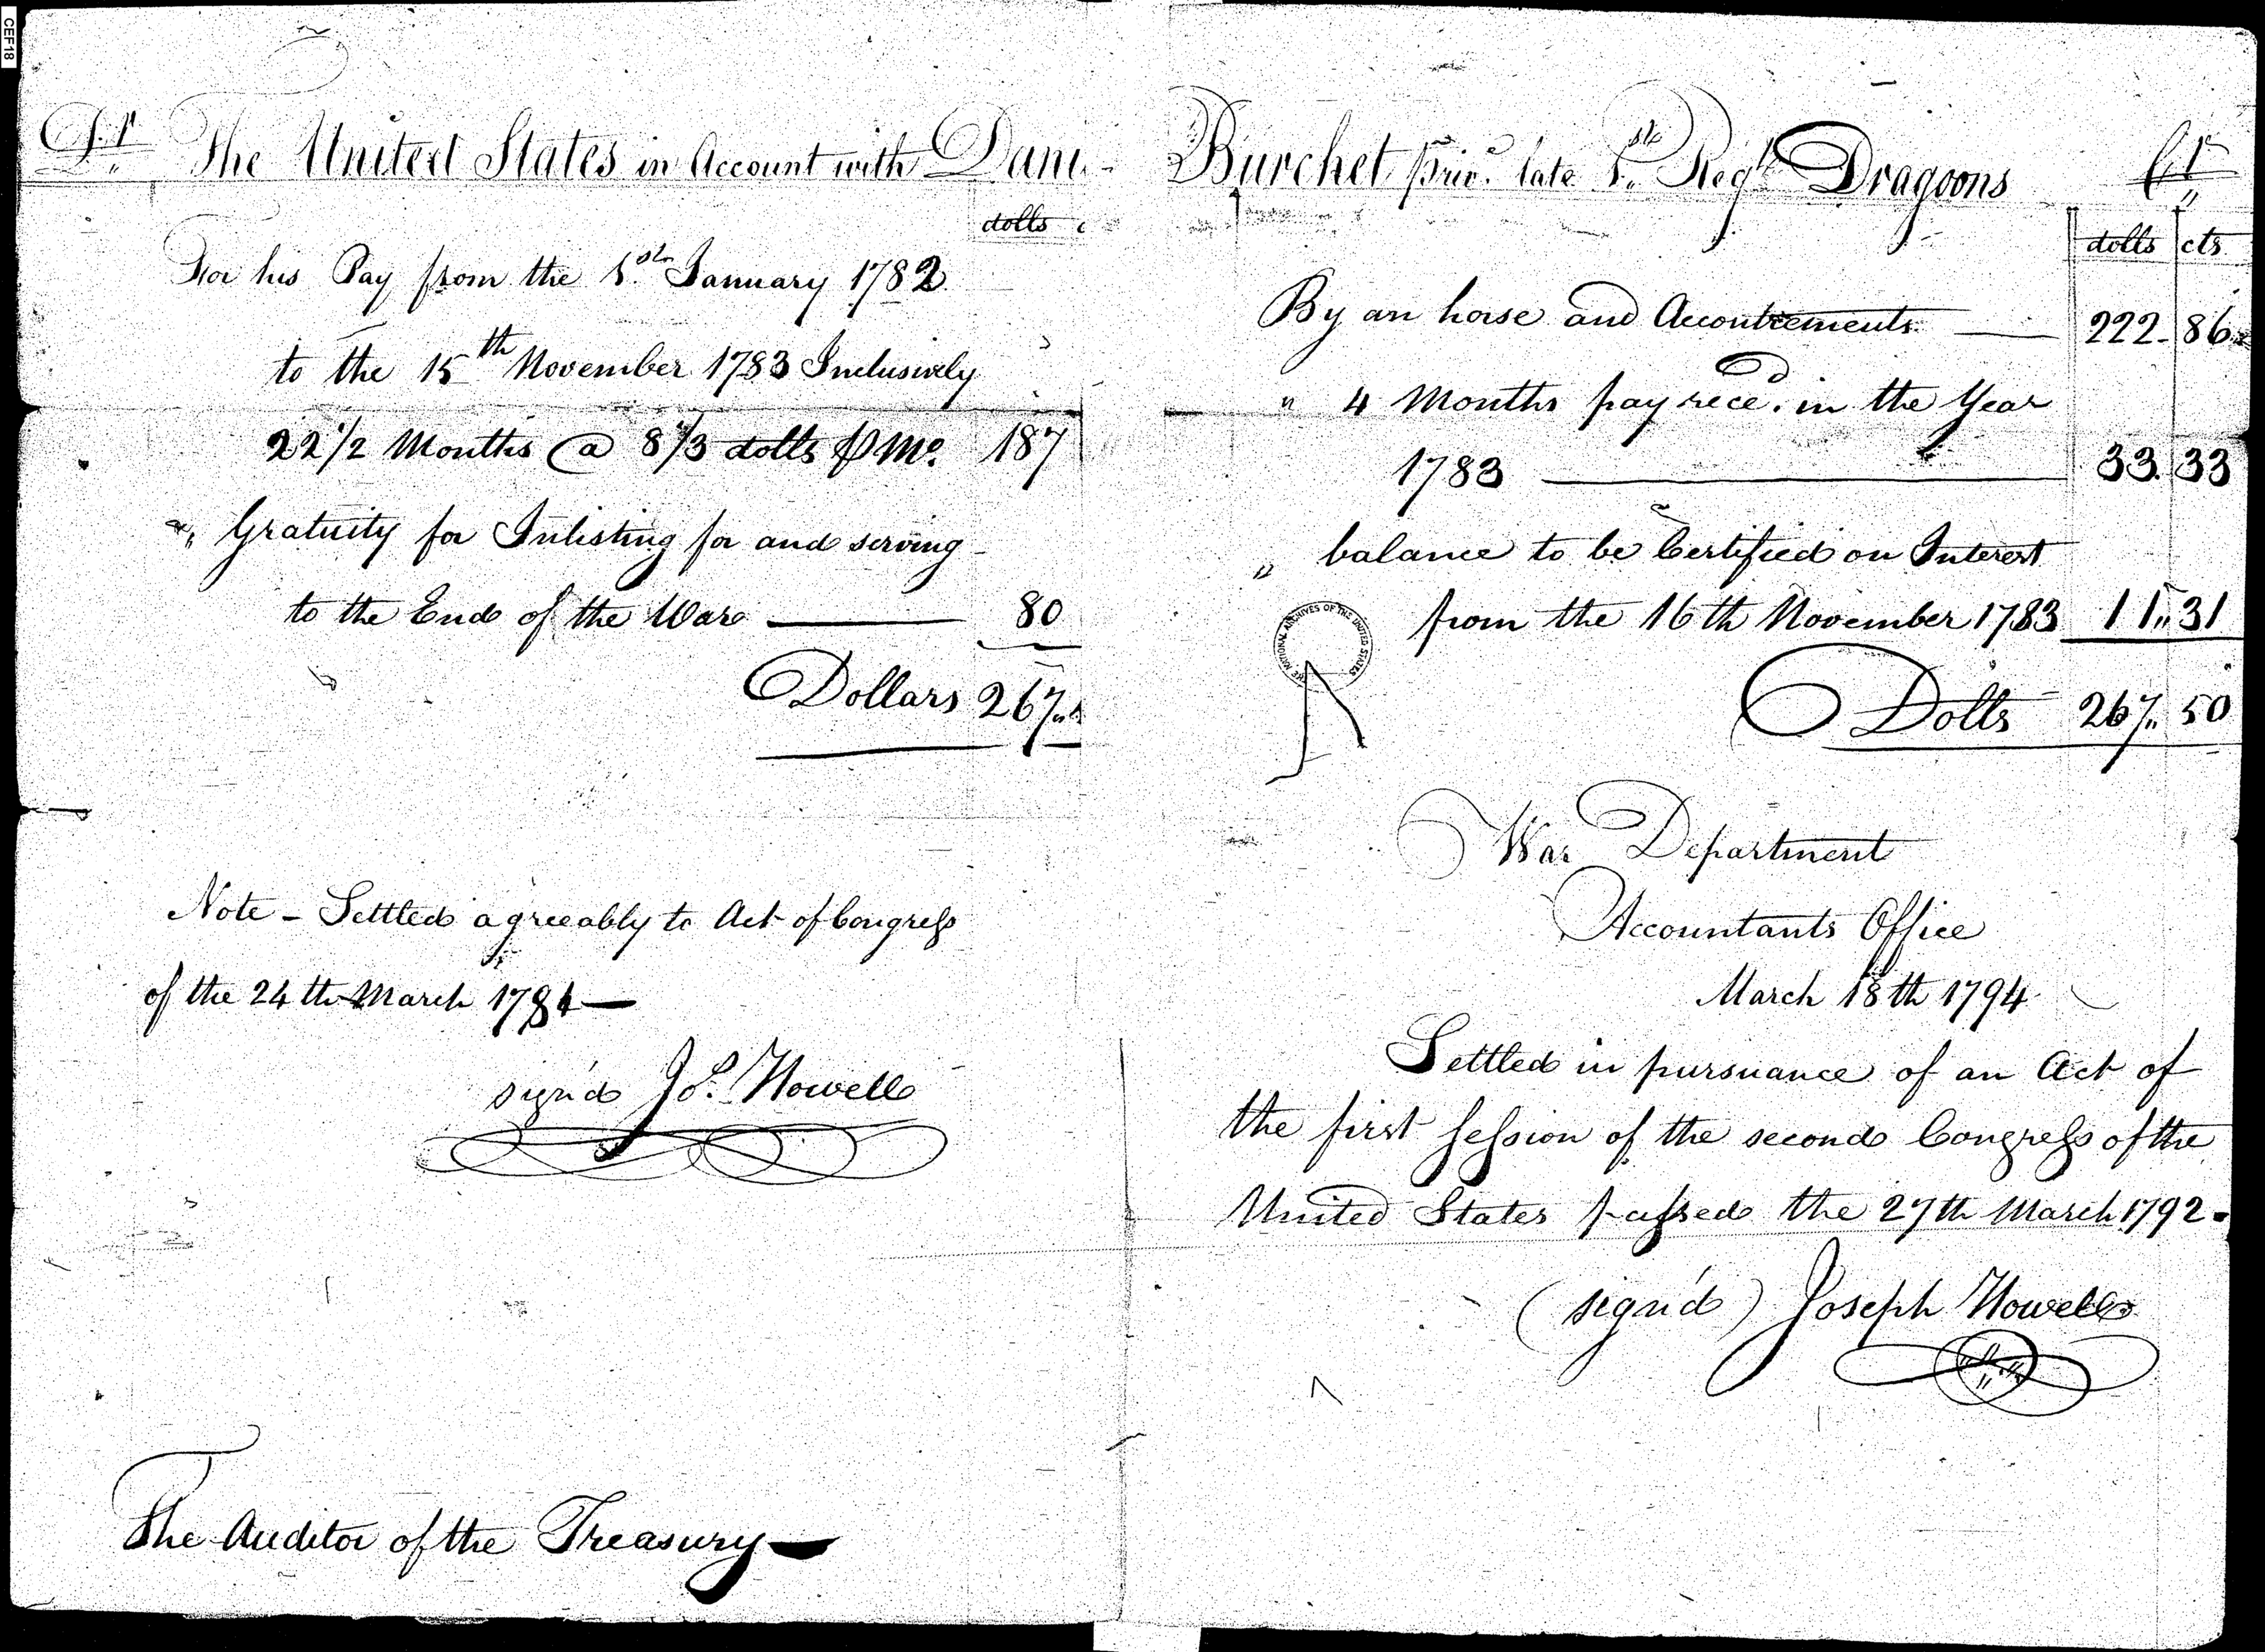 CEF18
Dr The United States in Account with Dani Burchet Priv. late 1st Regt Dragoons Cr
dolls
For his Pay from the 1st January 1782
to the 15th November 1783 Inclusively
22 1/2 Months @ 8 1/3 dolls P Mo. 187
" Gratuity for Inlisting for and serving
to the End of the War 80
Dollars 267
Note - Settled agreeably to Act of Congress
of the 24th March 1784 —
sign'd Jos. Howell
The Auditor of the Treasury —
dolls cts
By an horse and Accoutrements — 222 86
" 4 Months pay reced. in the Year
1783 — 33. 33
" balance to be Certified on Interest
from the 16th November 1783 11 " 31
Dolls 267 " 50
THE NATIONAL ARCHIVES OF THE UNITED STATES
War Department
Accountants Office
March 18th 1794
Settled in pursuance of an Act of
the first Session of the second Congress of the
United States passed the 27th March 1792.
(sign'd) Joseph Howell